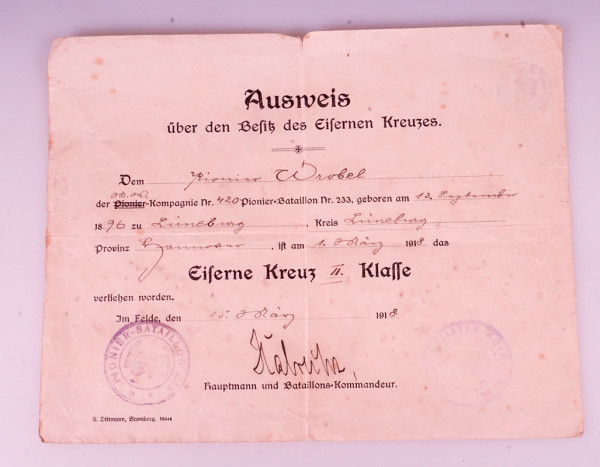 Ausweis
über den Besitz des Eisernen Kreuzes.
Dem Pionier Wrobel
der Pionier-Kompagnie Nr. 420 Pionier-Bataillon Nr. 233, geboren am 13. September
1896 zu Lüneburg, Kreis Lüneburg,
Provinz Hannover, ist am 1. März 1918 das
Eiserne Kreuz II. Klasse
verliehen worden.
Im Felde, den 15. März 1918
PIONIER-BATAILLON
Hauptmann und Bataillons-Kommandeur.
A. Dittmann, Bromberg.